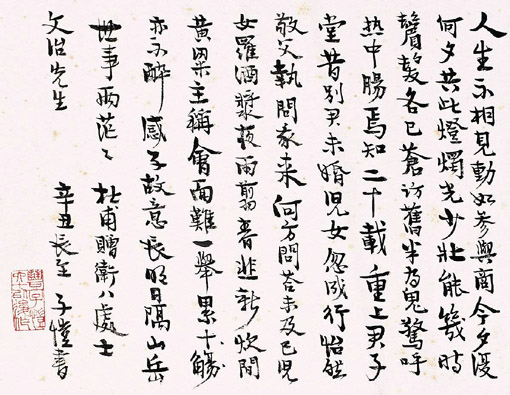 人生不相見動如參與商今夕復
何夕共此燈燭光少壯能幾時
鬢髮各已蒼訪舊半為鬼驚呼
热中腸焉知二十載重上君子
堂昔別君未婚兒女忽成行怡然
敬父執問我來何方問答未及已兒
女羅酒漿夜雨翦春韭新炊間
黃粱主稱會面難一舉累十觴
亦不醉感子故意長明日隔山岳
世事兩茫々 杜甫贈衛八處士
文治先生 辛丑長至 子愷書